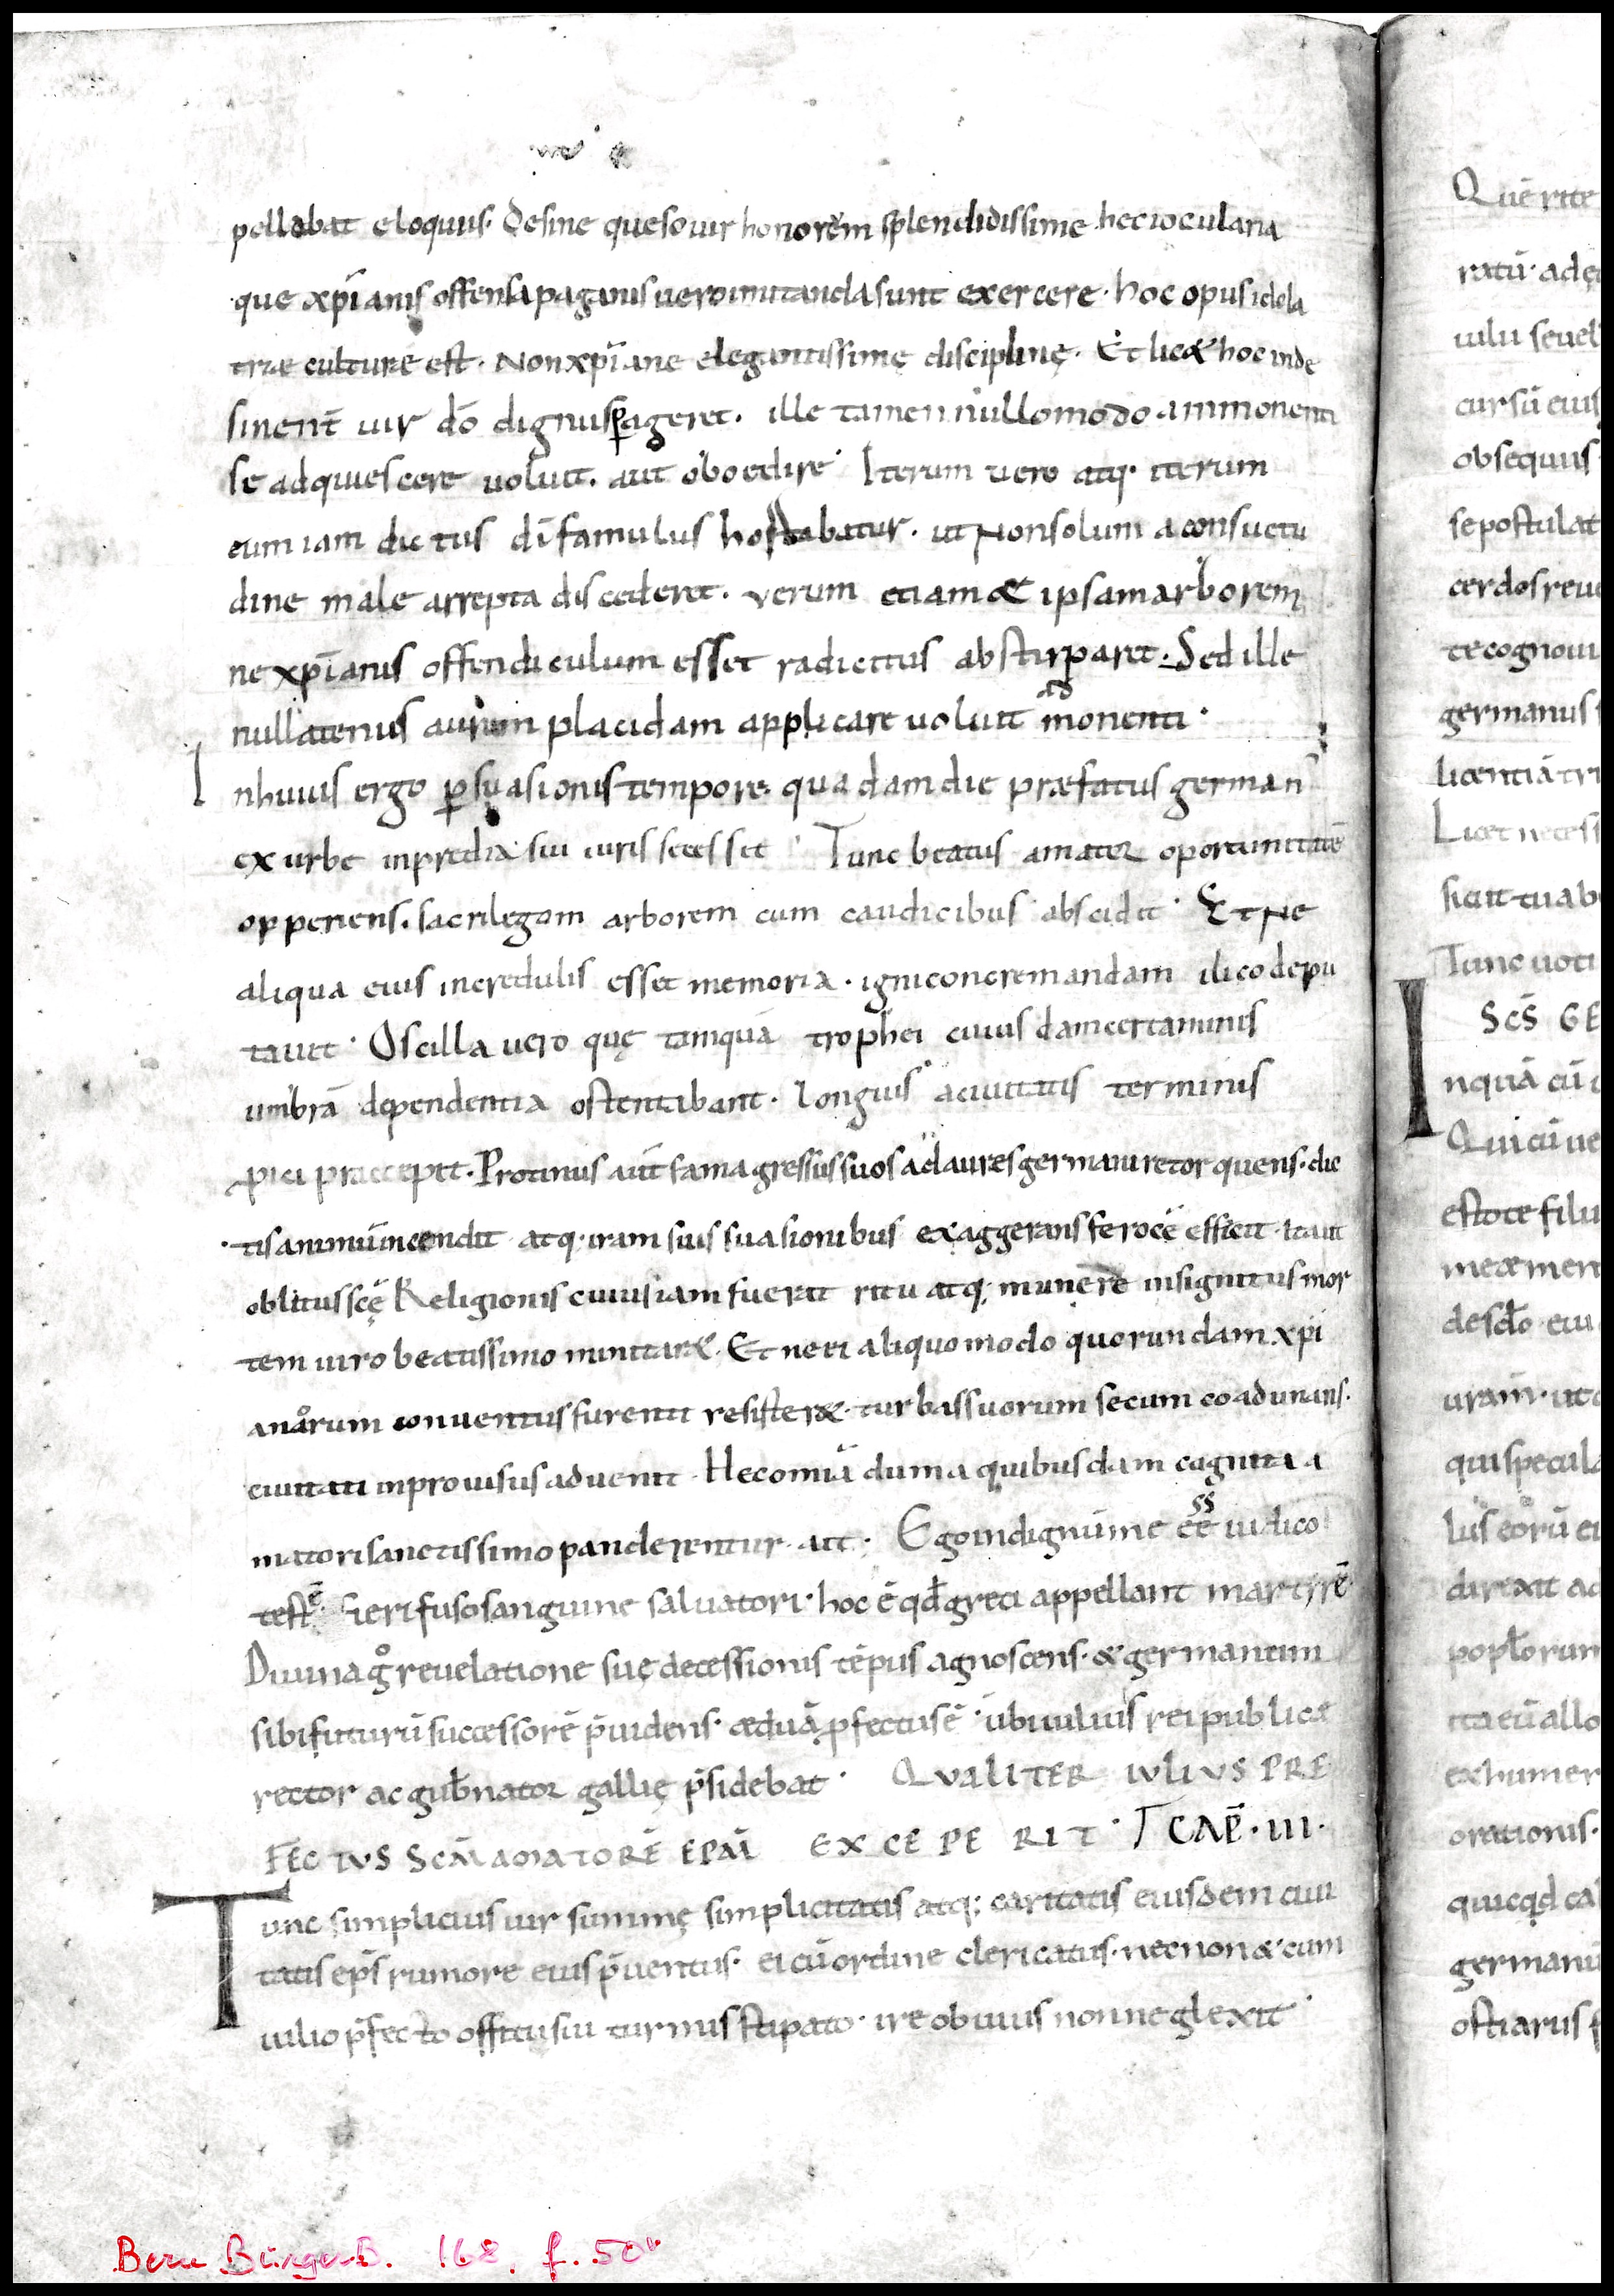 pellabat eloquiis· Desine queso uir honorem splendidissime hec iocularia
que xp̄ianis offensa paganis uero imitanda sunt exercere· hoc opus idola
triae culturę est· Non xp̄iane elegantissimę disciplinę· Et lic& hoc inde
sinent̄ uir dō dignus ꝑageret· ille tamen nullomodo ammonenti
se adquiescere uoluit· aut oboedire· Iterum uero atq· iterum
eum iam dictus dī famulus hortabatur· ut Non solum a consuetu
dine male arrepta discederet· verum etiam & ipsam arborem
ne xp̄ianis offendiculum esset radicitus abstirparet· Sed ille
nullatenus aurem placidam applicare uoluit ad monenti·
Inhuius ergo ꝑsuasionis tempore· quadam die præfatus german̄
ex urbe in predia sui iuris secessit· Tunc beatus amator oportunitatē
opperiens· sacrilegam arborem cum caudicibus abscidit· Et Ne
aliqua eius incredulis esset memoria· igni concremandam ilico depu
tauit· Oscilla uero quę tamquā trophei cuiusdam certaminis
umbrā dependentia ostentabant· longius a ciuitatis terminis
proici praecepit· Protinus aut̄ fama gressus suos ad aures germani retorquens· dic
tis animū incendit atq· iram suis suasionibus exaggerans ferocē efficit· ita ut
oblitus scę̄ Religionis cuius iam fuerat ritu atq; munere insignitus mor
tem uiro beatissimo minitar&· Et ne ei aliquo modo quorundam xp̄i
anorum conuentus furenti resister&· turbas suorum secum coadunans·
ciuitati inprouisus aduenit· Hec omīa dum a quibusdam cognita a
matori sanctissimo panderentur· ait· Ego indignū me ēē iudico
testē· fieri fuso sanguine saluatori· hoc ē qd̄ greci appellant martyrē·
Diuina gͦ reuelatione suę decessionis tēpus agnoscens· & germanum
sibi futurū successorē p̄uidens· æduā ꝓfectus ē· ubi iulius rei publicæ
rector ac gub̄nator gallię p̄sidebat· QVALITER IVLIVS PRE
FECTVS SCM̄ AMATORĒ EPM̄ EXCEPERIT· CAP̄·III·
Tunc simplicius uir summę simplicitatis atq; caritatis eiusdem ciui
tatis ep̄s rumore eius p̄uentus· ei cū ordine clericatus· necnon & cum
iulio p̄fecto officii sui turmis stipato· ire obuius non neglexit·
Quē rite
ratū· adęd
iulii seuel
cursū eius
obsequiis
se postulat
cerdos reue
te cognoui
germanus
licentiā tri
Licet necess
sicut tu ab
Tunc uoti
SCS̄ GE
Inquā cū
Qui cū ue
estote filii
meæ men
desd̄o eiu
uram· ut
qui specula
lus eorū ei
direxit ad
popl̄orum
ita eū allo
ex humer
orationis·
quicqd̄ ca
germanū
ostiarus
Bern Burgerb. 168. f. 50v